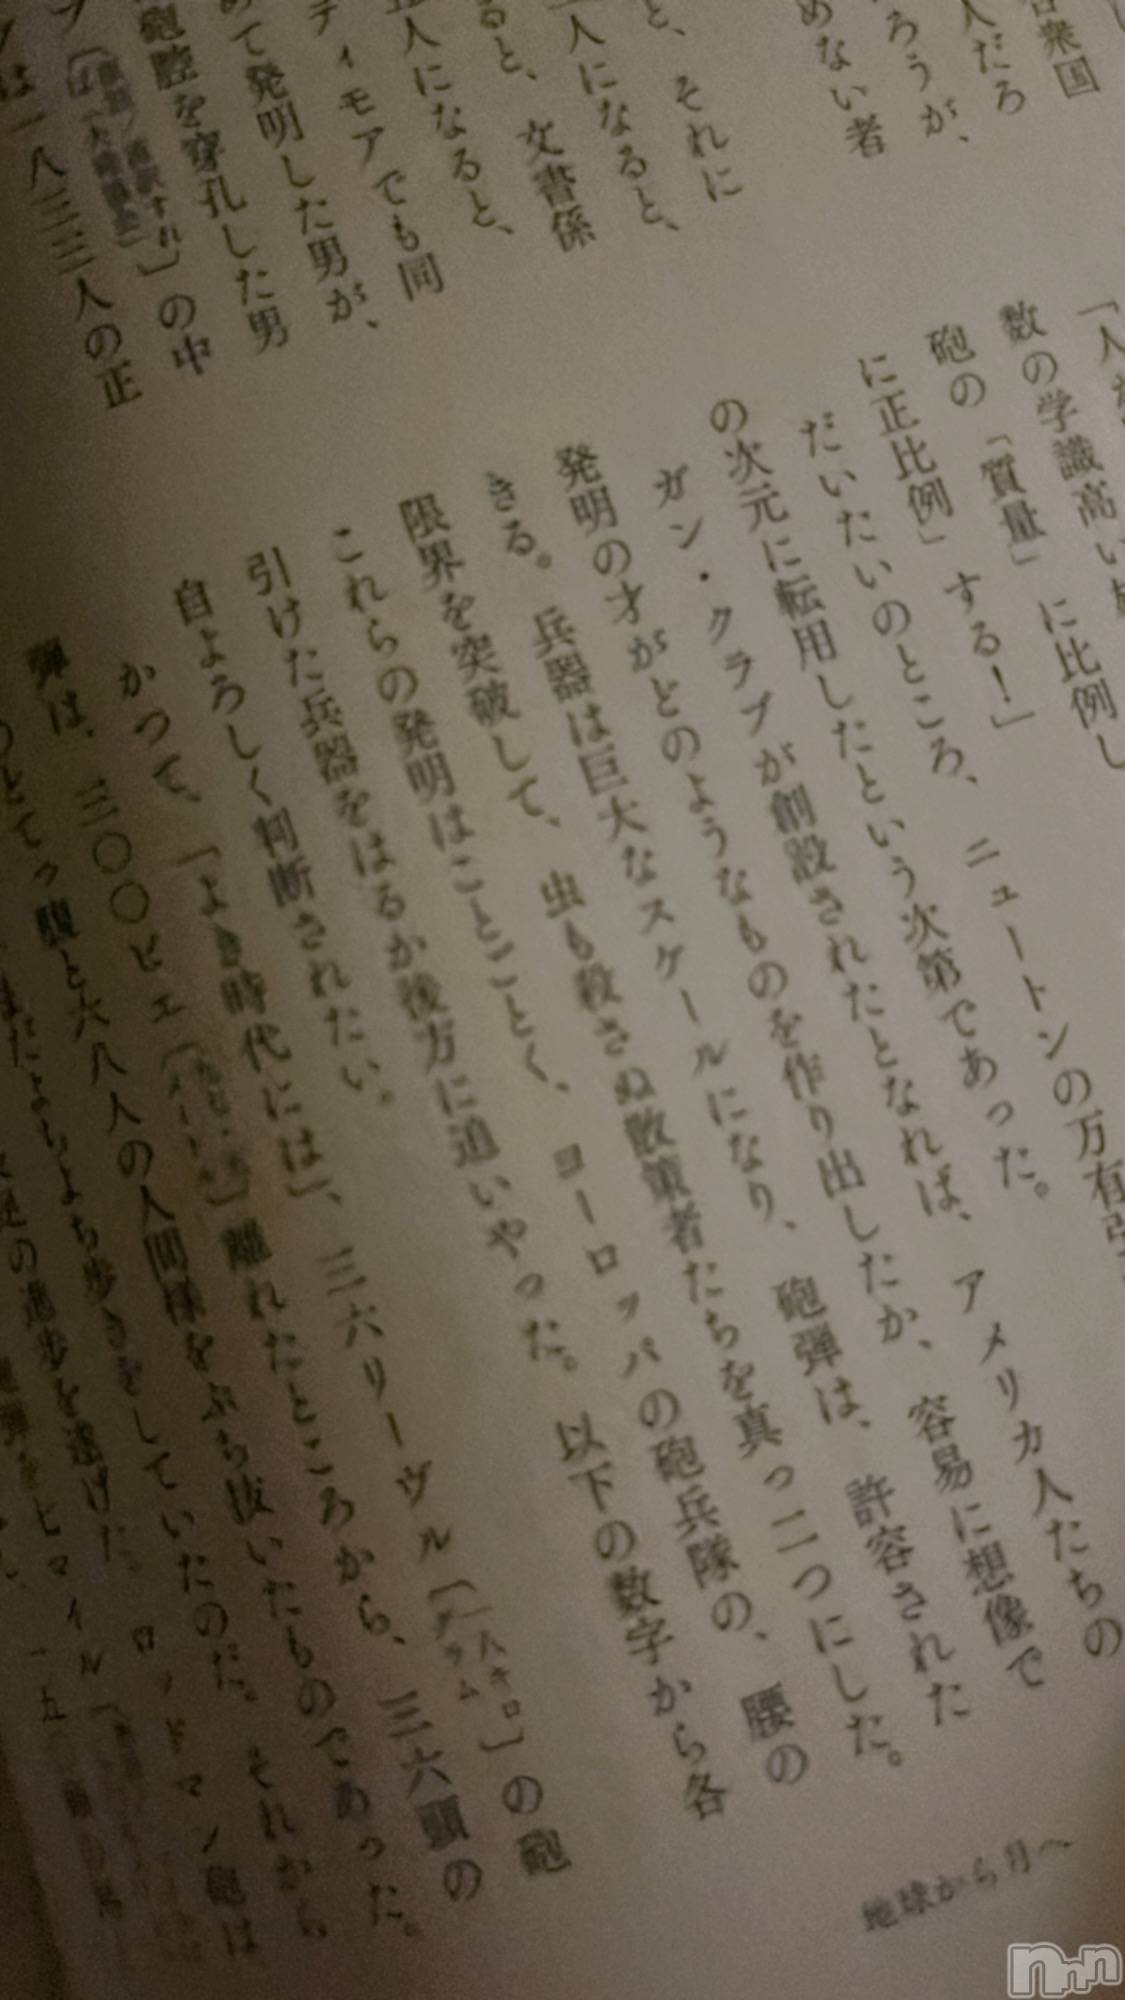 合衆国
人だろ
ろうが、
めない者
と、それに
一人になると、
ると、文書係
五人になると、
ティモアでも同
めて発明した男が、
砲腔を穿孔した男
」の中
は一八三三人の正
「人
数の学識高い
砲の「質量」に比例し
に正比例」する！」
だいたいのところ、ニュートンの万有引
の次元に転用したという次第であった。
ガン・クラブが創設されたとなれば、アメリカ人たちの
発明の才がどのようなものを作り出したか、容易に想像で
きる。兵器は巨大なスケールになり、砲弾は、許容された
限界を突破して、虫も殺さぬ散策者たちを真っ二つにした。
これらの発明はことごとく、ヨーロッパの砲兵隊の、腰の
引けた兵器をはるか後方に追いやった。以下の数字から各
自よろしく判断されたい。
かつて、「よき時代には」、三六リーヴル〔一八キログラム〕の砲
弾は、三〇〇ピエ離れたところから、三六頭の
と六八人の人間様をぶち抜いたものであった。
よちよち歩きをしていたのだ。それから
の進歩を遂げた。ロッドマン砲は
地球から月へ
nnn